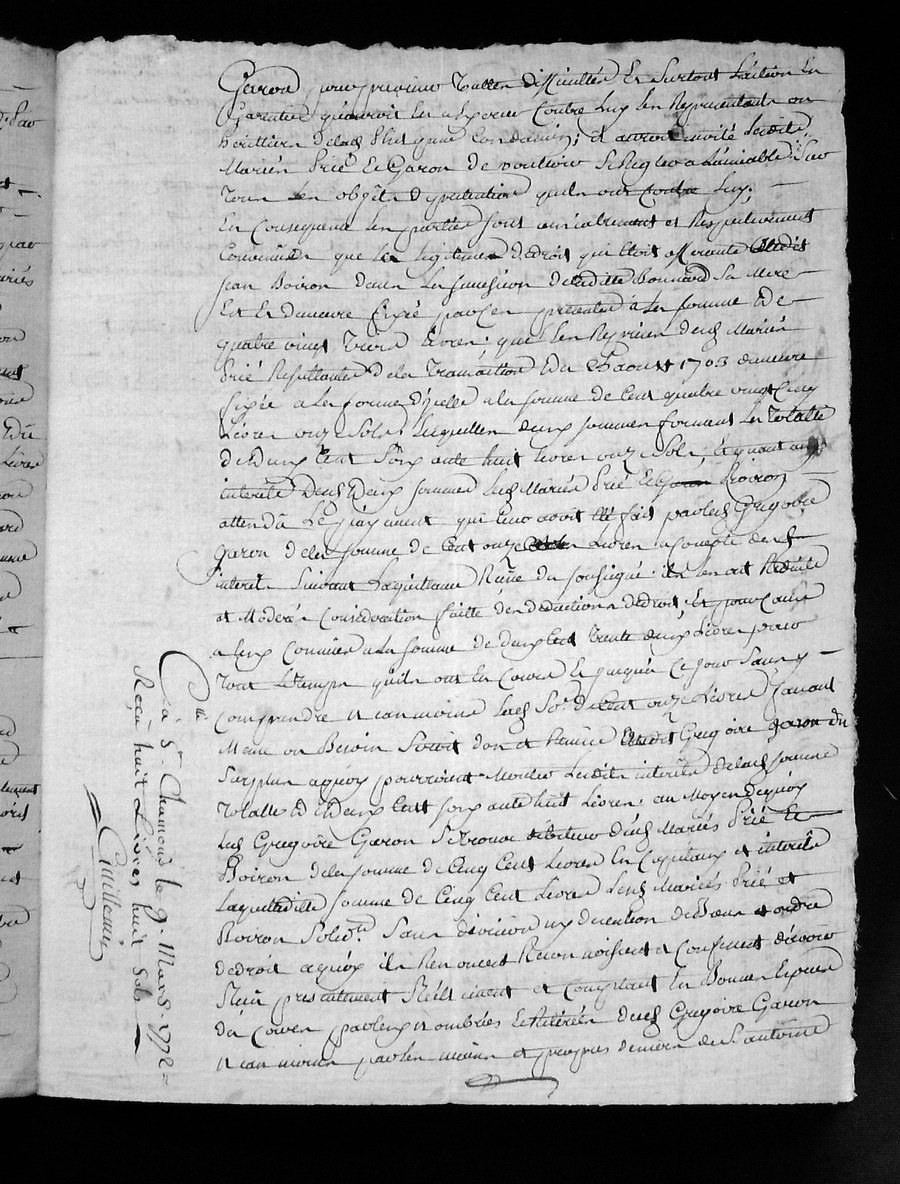 Garon pour prevenir telles difficultés Et Surtout L'action En
Garantie qu'auroit Les exposer Contre Luy Les Representants ou
heritiers de lad. ; Et auroit invité Lesdits
Mariés Prié Et Garon de vouloir Se Regler a L'amiable Sur
Tous Les objets de petition qu'ils ont Contre Luy.
En Consequence Les parties Sont amiablement et Respectivement
Convenües que Les legitimes de droit qui Etoit afferente audit
Jean Boiron dans La Succession de laditte Bonnard Sa Mere
Est Et demeure fixée par Ces presentes a La Somme de
quatre vingt trois Livres: que Les Reprises desd. Mariés
Prié Resultantes de la Transaction du aoust 1703 demeure
fixée a La forme d'jcelle a la Somme de Cent quatre vingt Cinq
Livres onze Sols. Lesquelles deux Sommes forment La Totalité
de deux Cent Soixante huit Livres onze Sols, Et quant aux
interets Desd. deux Sommes Lesd. Mariés Prié Et Boiron
attendû Le payement qui Leur avoit eté fait par led. Gregoire
Garon de la Somme de Cent onze Livres a Compte des
interets Suivant La quittance Reçue du Soussigné. ils Les ont Reduits
et Moderés Consideration faitte des deductions de droit, Et pour Cause
a Eux Connües a la Somme de deux Cent trente deux Livres pour
Tout Le temps qu'ils ont En Cours Et jusques a Ce jour Sans y
Comprendre neanmoins lad. So.e de Cent onze Livres faisant
Meme ou Besoin Seroit don et Remise audit Gregoire Garon du
Surplus a quoy pourroient Monter Lesdits interets de lad. Somme
Totalle de deux Cent Soixante huit Livres: au Moyen de quoy
Led. Gregoire Garon Se trouve debiteur desd. Mariés Prié Et
Boiron de la Somme de Cinq Cent Livres En Capitaux et interets
Laquelleditte Somme de Cinq Cent Livres Lesd. Mariés Prié et
Boiron Solid.nt Sans division ny discution de Biens et ordre
de droit a quoy ils Renoncent Reconnoissent et Confessent d'avoir
Reçu presentement Réelement et Comptant En Bonnes Especes
du Cours par Eux Nombrées Et Retirées dud. Gregoire Garon
Neanmoins par les mains et propres deniers de S.r antoine
C.llé à S.t Chamond le 9. Mars. 1772
Reçu huit Livres huit Sols